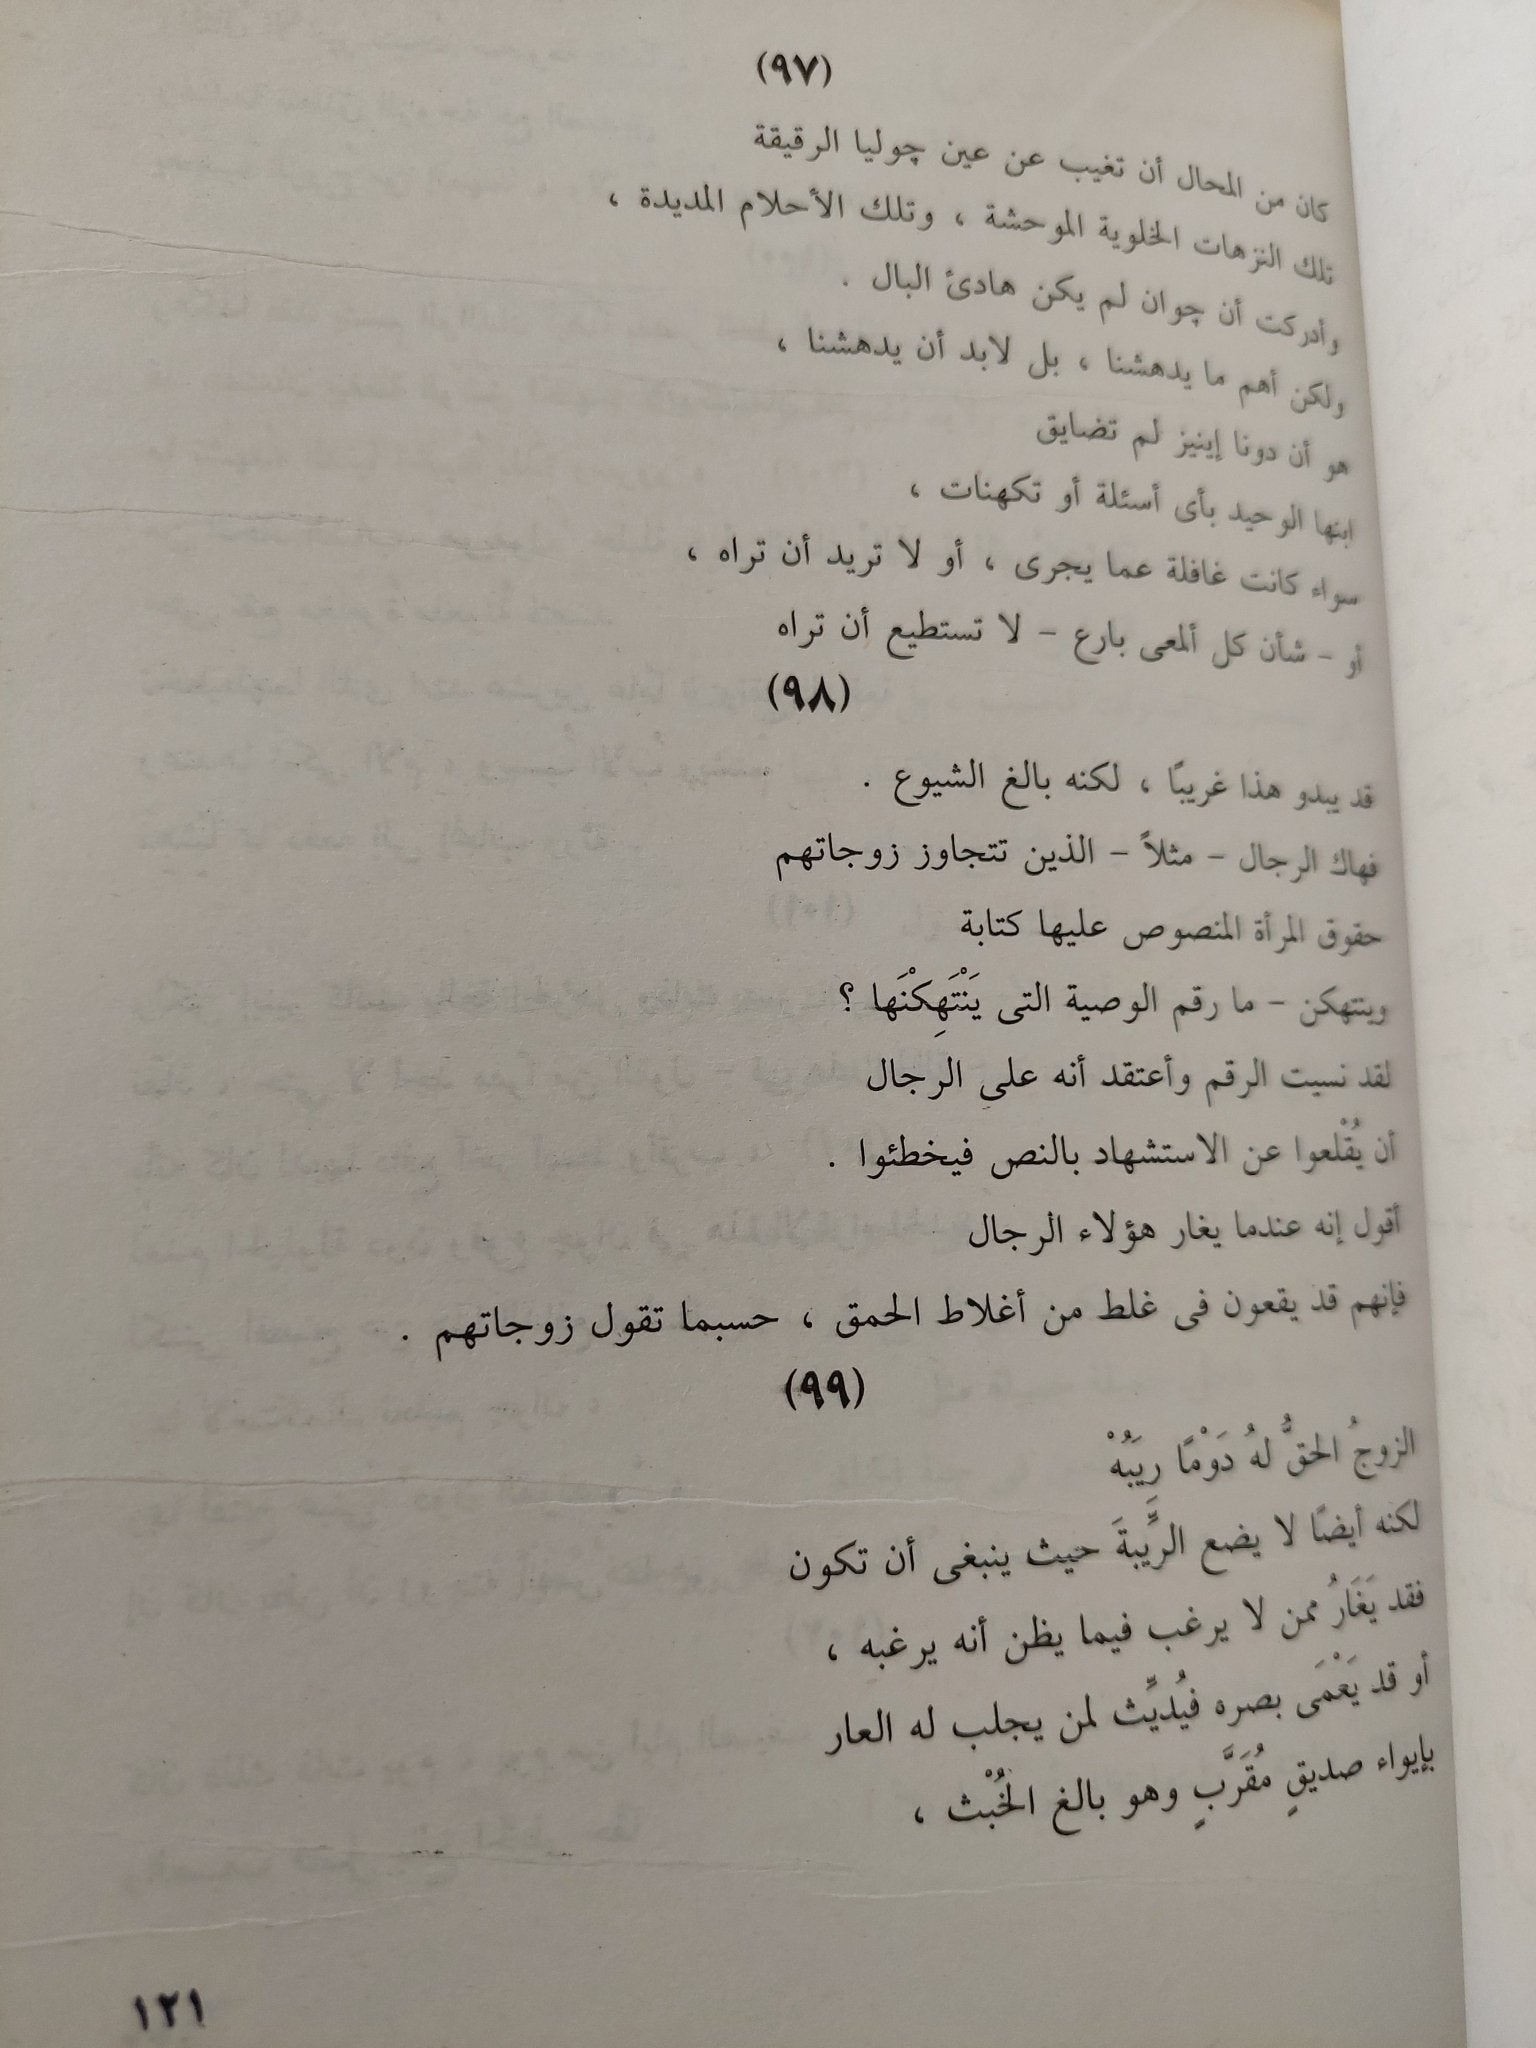 (٩٧)
كان من المحال أن تغيب عن عين چوليا الرقيقة
تلك النزهات الخلوية الموحشة ، وتلك الأحلام المديدة ،
وأدركت أن چوان لم يكن هادئ البال .
ولكن أهم ما يدهشنا ، بل لابد أن يدهشنا ،
هو أن دونا إينيز لم تضايق
ابنها الوحيد بأى أسئلة أو تكهنات ،
سواء كانت غافلة عما يجرى ، أو لا تريد أن تراه ،
أو - شأن كل ألمعى بارع - لا تستطيع أن تراه
(٩٨)
قد يبدو هذا غريبًا ، لكنه بالغ الشيوع .
فهاك الرجال - مثلاً - الذين تتجاوز زوجاتهم
حقوق المرأة المنصوص عليها كتابة
وينتهكن - ما رقم الوصية التى يَنْتَهِكْنَها ؟
لقد نسيت الرقم وأعتقد أنه على الرجال
أن يُقْلعوا عن الاستشهاد بالنص فيخطئوا .
أقول إنه عندما يغار هؤلاء الرجال
فإنهم قد يقعون فى غلط من أغلاط الحمق ، حسبما تقول زوجاتهم .
(٩٩)
الزوجُ الحقُّ لهُ دَوْمًا رِيَبُهْ
لكنه أيضًا لا يضع الرِّيبةَ حيث ينبغى أن تكون
فقد يَغَارُ ممن لا يرغب فيما يظن أنه يرغبه ،
أو قد يَعْمَى بصره فيُديِّث لمن يجلب له العار
بإيواء صديقٍ مُقَرَّبٍ وهو بالغ الخُبْث ،
١٢١